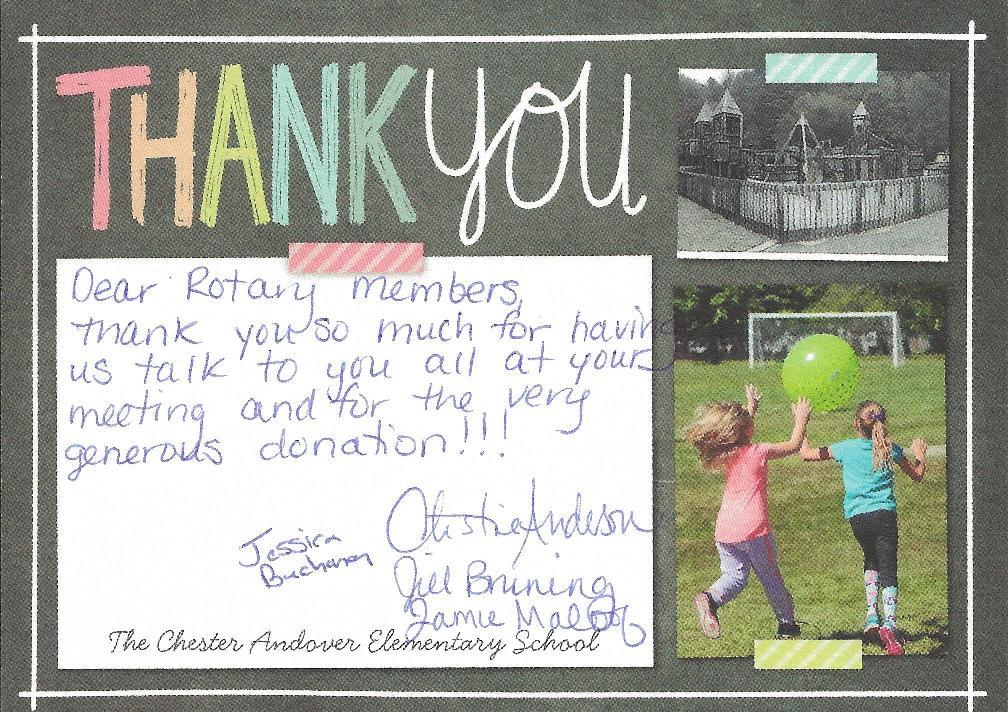 THANK YOU
Dear Rotary members,
thank you so much for having
us talk to you all at your
meeting and for the very
generous donation!!!
Christine Anderson
Jessica
Buchanan
Jill Bruning
Jamie
The Chester Andover Elementary School